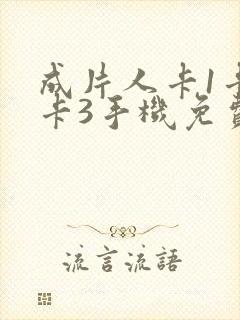 成片人卡1卡
卡3手機免費
流言流語